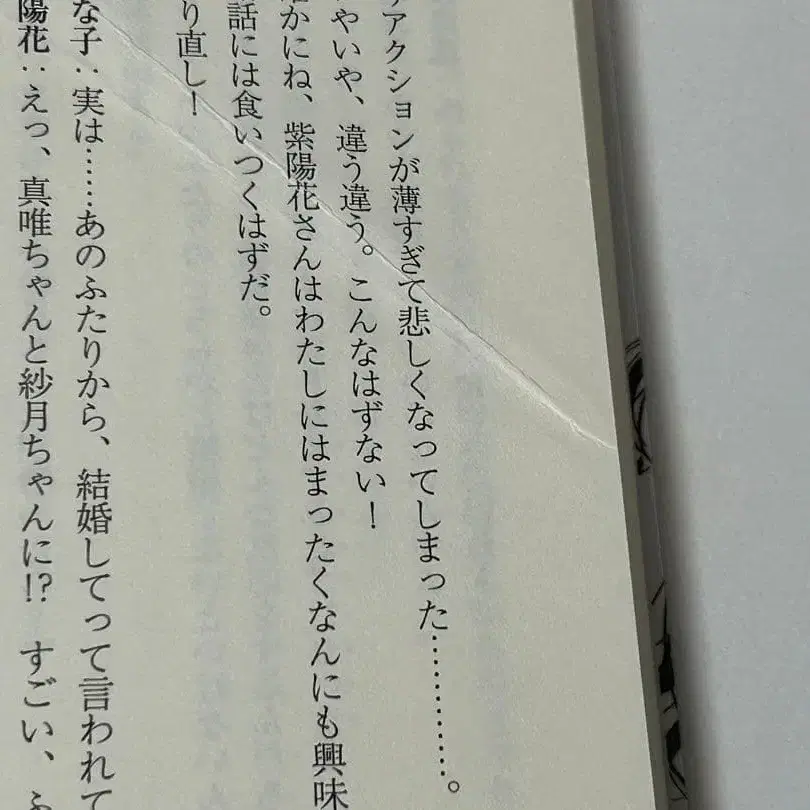 アクションが薄すぎて悲しくなってしまった……………。
やいや、違う違う。こんなはずない！
かにね、紫陽花さんはわたしにはまったくなんにも興味
話には食いつくはずだ。
り直し！
な子：実は……あのふたりから、結婚してって言われて
陽花：えっ、真唯ちゃんと紗月ちゃんに!?　すごい、ふ